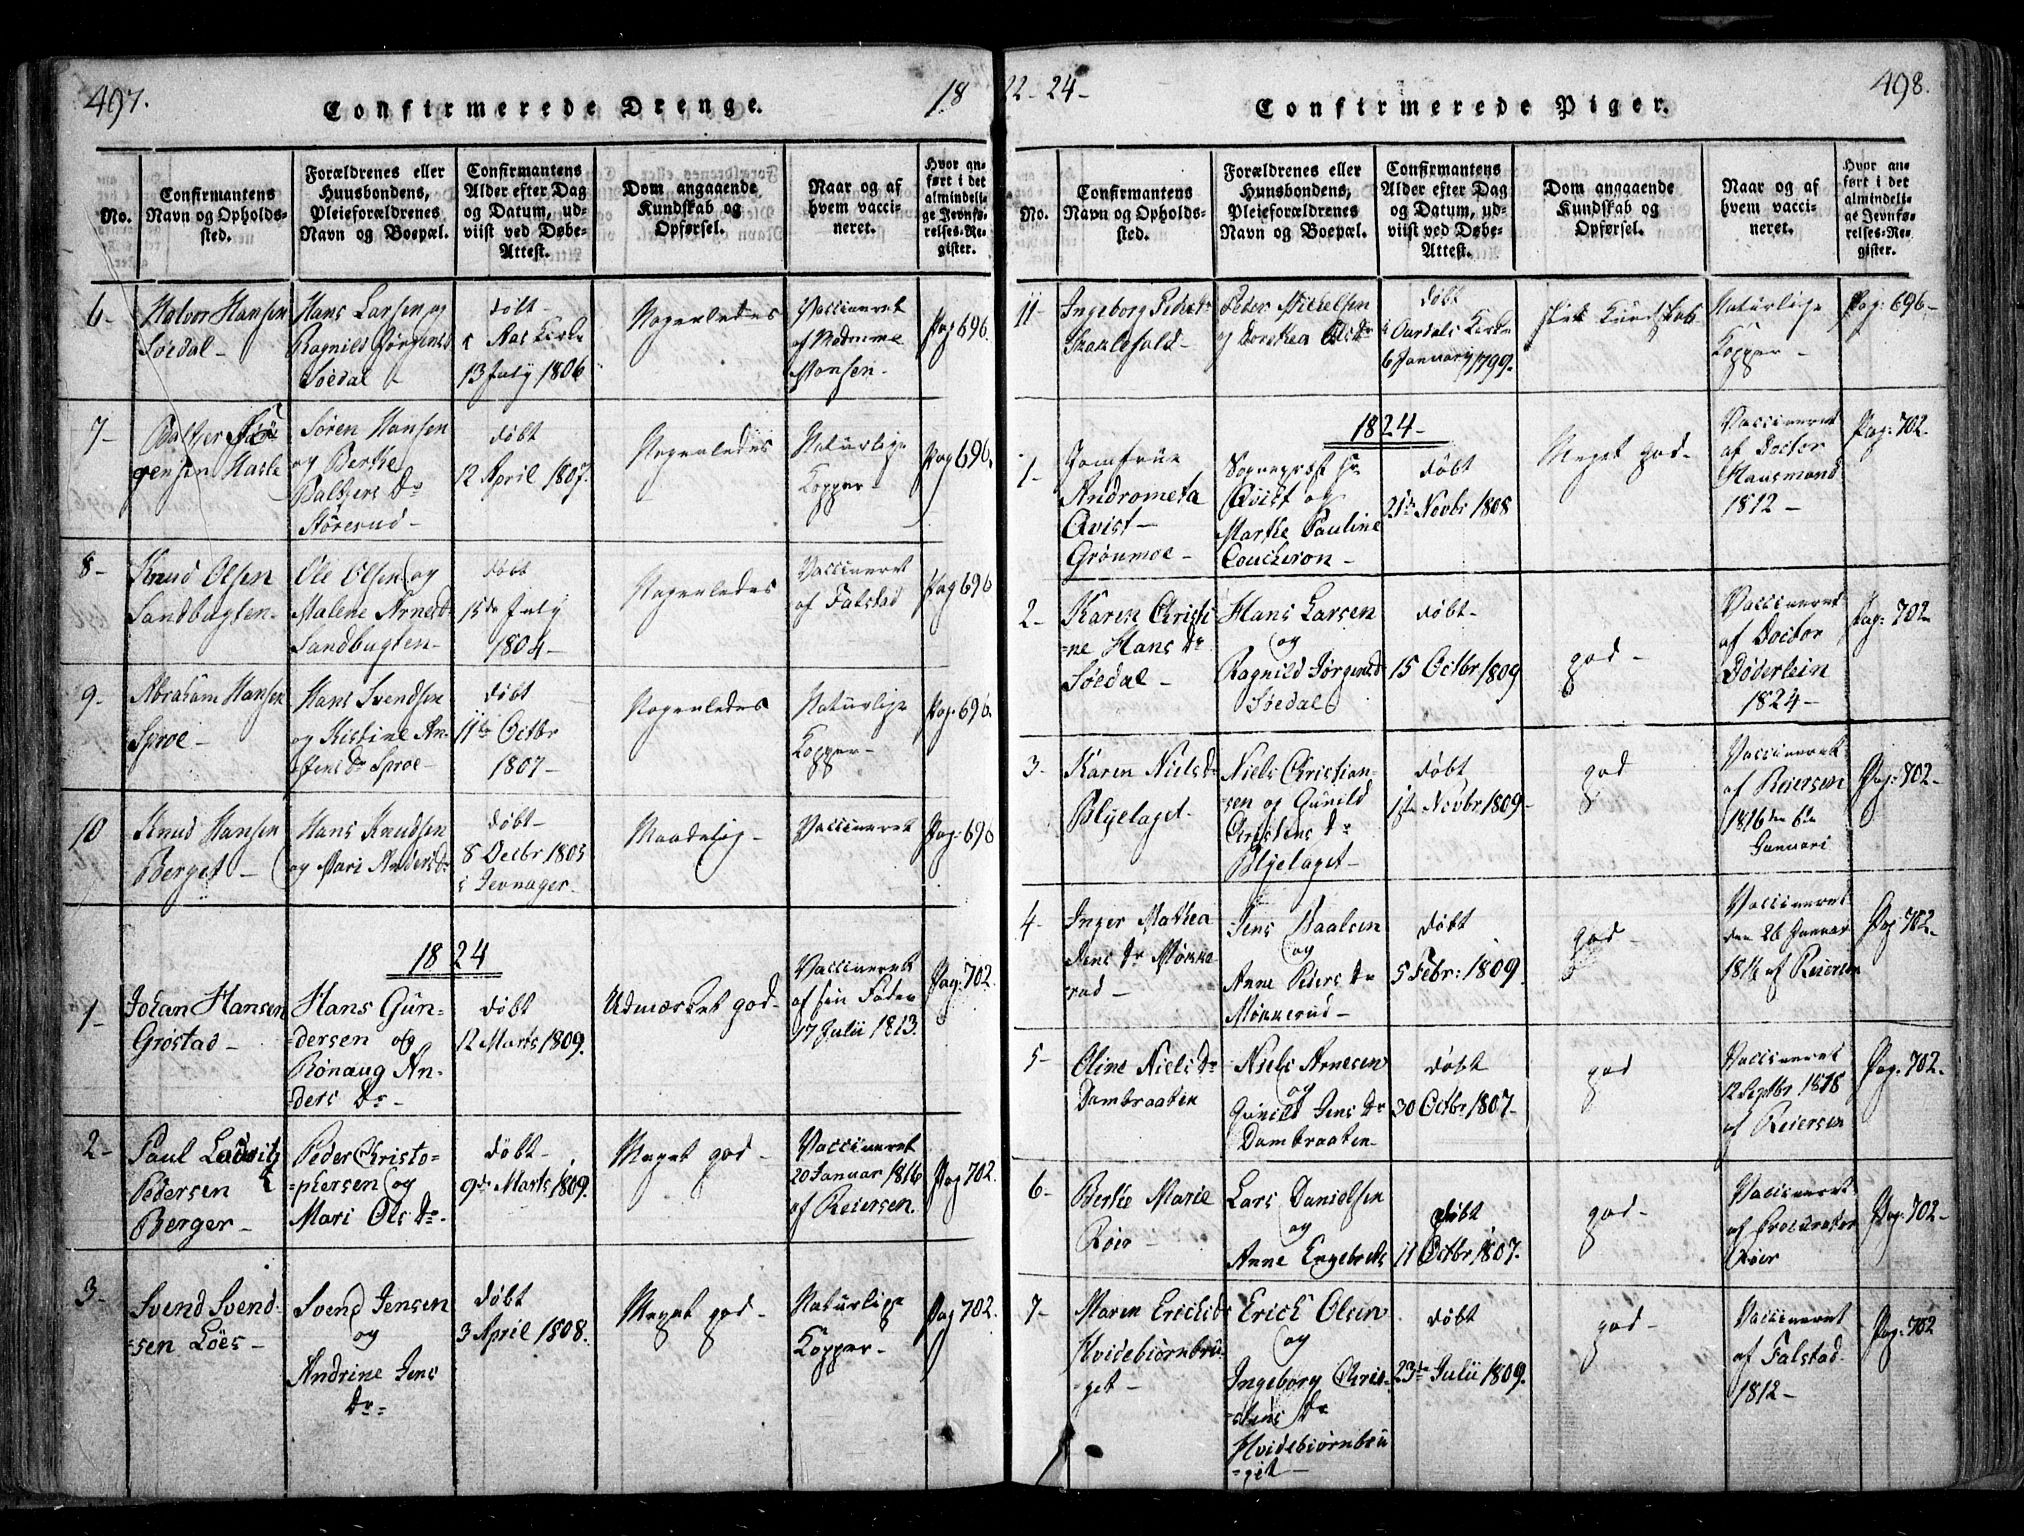 497.
Confirmerede Drenge.
18
No.
Confirmantens
Navn og Opholds-
sted.
Forældrenes eller
Huusbondens,
Pleieforældrenes
Navn og Boepæl.
Confirmantens
Alder efter Dag
og Datum, ud-
viist ved Døbe-
Attest.
Dom angaaende
Kundskab og
Opførsel.
Naar og af
hvem vacci-
neret.
Hvor an-
ført i det
almindeli-
ge Jevnfø-
relses-Re-
gister.
6-
Halvor Hansen
Soedal-
Hans Larsen og
Ragnild Jørgensd
Soedal -
døbt-
i Aas Kirke
13 July 1806
Nogenledes
Vaccineret
af Madamme
Monsen-
Pag 696.
7-
Baltzer
gensen Hasle
Søren Hansen
og Berthe
Baltzers Dr
Størerud-
døbt
12 April 1807.
Nogenledes
Naturlige
Kopper-
Pag 696.
8-
Knud Olsen
Sandbugten-
Ole Olsen og
Malene Arnesd
Sandbugten-
døbt
15de July
1804-
Nogenledes
Vaccineret
af Falstad
Pag 696
9-
Abraham Hansen
Sproe-
Hans Svendsen
og Kistine An-
Sproe-
døbt-
11te Octbr
1807-
Nogenledes
Naturlige
Kopper-
Pag. 696.
10
Knud Hansen
Berget-
Hans Knudsen
og Mari Andersdr
døbt-
8 Decbr 1805
i Jevnager-
Maadelig-
Vaccineret
Pag: 696
1824
1-
Johan Hansen
Grøstad-
Hans Gun-
=dersen og
Rønaug An-
ders Dr-
døbt
12 Marts 1809.
Udmærket god-
Vaccineret
af sin Fader
17 Julii 1813.
Pag: 702.
2-
Paul Ludvig
Pedersen
Berger-
Peder Christo=
=phersen og
Mari Ols Dr-
døbt-
9de Marts 1809.
Meget god-
Vaccineret
20 Januar 1816
af Reiersen.
Pag 702.
3-
Svend Svend-
=sen Löes-
Svend Jensen
og
Andrine Jens
Dr=
døbt
3 April 1808.
Meget god-
Naturlige
Kopper-
Pag 702.
22-24-
Confirmerede Piger.
498.
No.
Confirmantens
Navn og Opholds-
sted.
Forældrenes eller
Huusbondens,
Pleieforældrenes
Navn og Boepæl.
Confirmantens
Alder efter Dag
og Datum, ud-
viist ved Døbe-
Attest.
Dom angaaende
Kundskab og
Opførsel.
Naar og af
hvem vacci-
neret.
Hvor an-
ført i det
almindeli-
ge Jevnfø-
relses-Re-
gister.
11-
Ingeborg Pedersdr
Skaklefald-
Peder Mickelsen
og Dorthea Olsdr
døbt
i Aardals Kirke
6 January 1799.
slet Kundskab
Naturlige
Kopper-
Pag: 696-
1824-
1-
Jomfrue
Andrometa
Qvist-
Grønmoe-
Sognepræst Hr
Qvist og
Marthe Pauline
Coucheron-
døbt
21de Novbr 1808
Meget god-
Vaccineret
af Doctor
Hansmand
1812-
Pag: 702.
2-
Karen Christi
=ne Hans Dr
Søedal-
Hans Larsen
og
Ragnild Jørgensd
Søedal
døbt-
15 Octbr 1809
god-
Vaccineret
af Doctor
Døderlein
1824-
Pag: 702-
3-
Karen Niels d
Blyelaget-
Niels Christian-
=sen og Gunild
Christens dr
Blyelaget-
døbt
1ste Novbr 1809-
god
Vaccineret
af Reiersen
1816 den 6te
Januari
Pag: 702-
4-
Inger Mathea
Jens Dr Møkke
rud-
Jens Paalsen
og
Anne Peders Dr
Møkkerud-
døbt
5 Febr: 1809
god-
Vaccineret
den 26 Januar
1816 af Reiersen
Pag 702-
5-
Oline Niels Dr
Dambraaten
Niels Arnesen
og
Gunild Jens Dr
Dambraaten-
døbt
30 Octbr 1807-
god
Vaccineret
12 Septbr 1818
af Reiersen
Pag. 702-
6-
Berthe Marie
Røer-
Lars Danielsen
og
Anne Engebrets
døbt
11 Octbr 1807.
god-
Vaccineret
af Procurator
Røer
Pag. 702-
7-
Maren Erichsd
Hvidebiørnbru-
=get-
Erich Olsen
og
Ingeborg Chris-
=tens Dr
Hvidebiørnbru
=get-
døbt
23de Julii 1809.
god-
Vaccineret
af Falstad-
1812-
Pag: 702